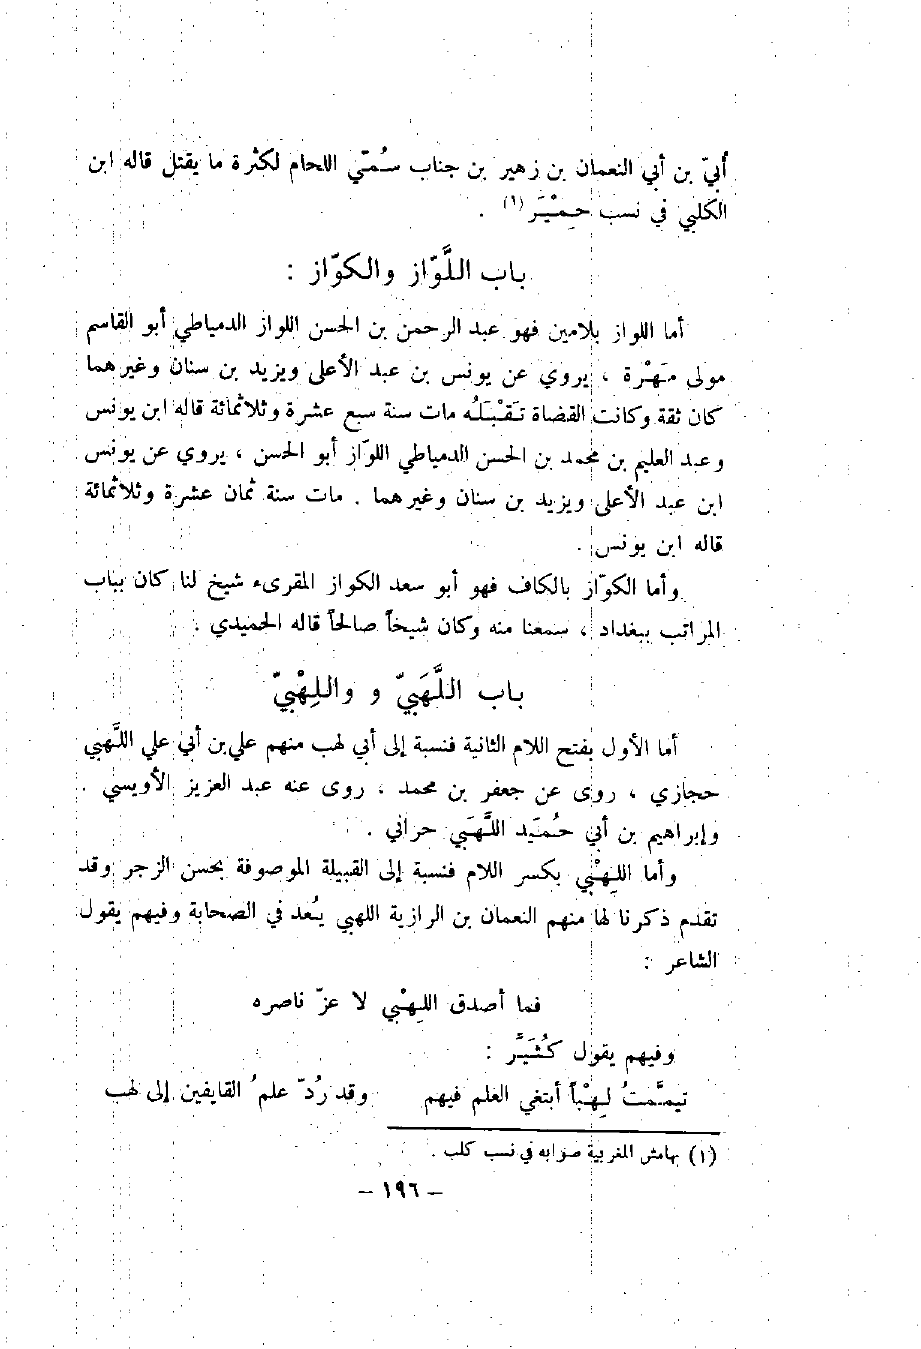 أبيّ بن أبي النعمان بن زهير بن جناب سُمّي اللحام لكثرة ما يقتل قاله ابن
الكلبي في نسب حِمْيَر (١) .
باب اللَّوّاز والكوّاز :
أما اللواز بلامين فهو عبد الرحمن بن الحسن اللواز الدمياطي أبو القاسم
مولى مَهْرة ، يروي عن يونس بن عبد الأعلى ويزيد بن سنان وغيرهما
كان ثقة وكانت القضاة تَقْبَلُه مات سنة سبع عشرة وثلاثمائة قاله ابن يونس
وعبد العليم بن محمد بن الحسن الدمياطي اللوّاز أبو الحسن ، يروي عن يونس
ابن عبد الأعلى ويزيد بن سنان وغيرهما . مات سنة ثمان عشرة وثلاثمائة
قاله ابن يونس .
وأما الكوّاز بالكاف فهو أبو سعد الكواز المقرىء شيخ لنا كان بباب
المراتب ببغداد ، سمعنا منه وكان شيخاً صالحاً قاله الحميدي .
باب اللَّهَبيّ و واللِهْبيّ
أما الأول بفتح اللام الثانية فنسبة إلى أبي لهب منهم علي بن أبي علي اللَّهبي
حجازي ، روى عن جعفر بن محمد ، روى عنه عبد العزيز الأويسي .
وإبراهيم بن أبي حُمَيد اللَّهَبي حراني .
وأما اللِهْبي بكسر اللام فنسبة إلى القبيلة الموصوفة بحسن الزجر وقد
تقدم ذكرنا لها منهم النعمان بن الرازية اللهبي يُعد في الصحابة وفيهم يقول
الشاعر :
فما أصدق اللِهْبي لا عزّ ناصره
وفيهم يقول كُثَيَّر :
تيمَّمتُ لِهْباً أبتغي العلم فيهم وقد رُدّ علمُ القايفين إلى لهب
(١) بهامش المغربية صوابه في نسب كلب .
– ١٩٦ –